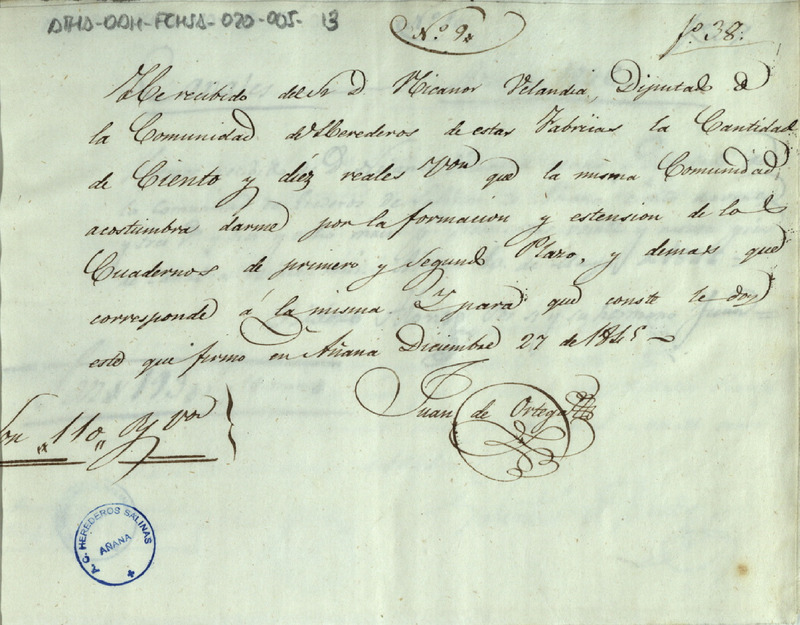 ATHA-DAH-FCHSA-020-005-13
N.º 9
fº 38.
He recibido del Sr D Nicanor Velandia, Diputad de
la Comunidad de Herederos de estas Fabricas la Cantidad
de Ciento y diez reales Von que la misma Comunidad
acostumbra darme por la formacion y estension de los
Cuadernos de primero y segundo Plazo, y demas que
corresponde á la misma. Y para que conste le doy
este que firmo en Añana Diciembre 27 de 1845
Juan de Ortega
Son 110 Rs Von
A. C. HEREDEROS SALINAS
AÑANA